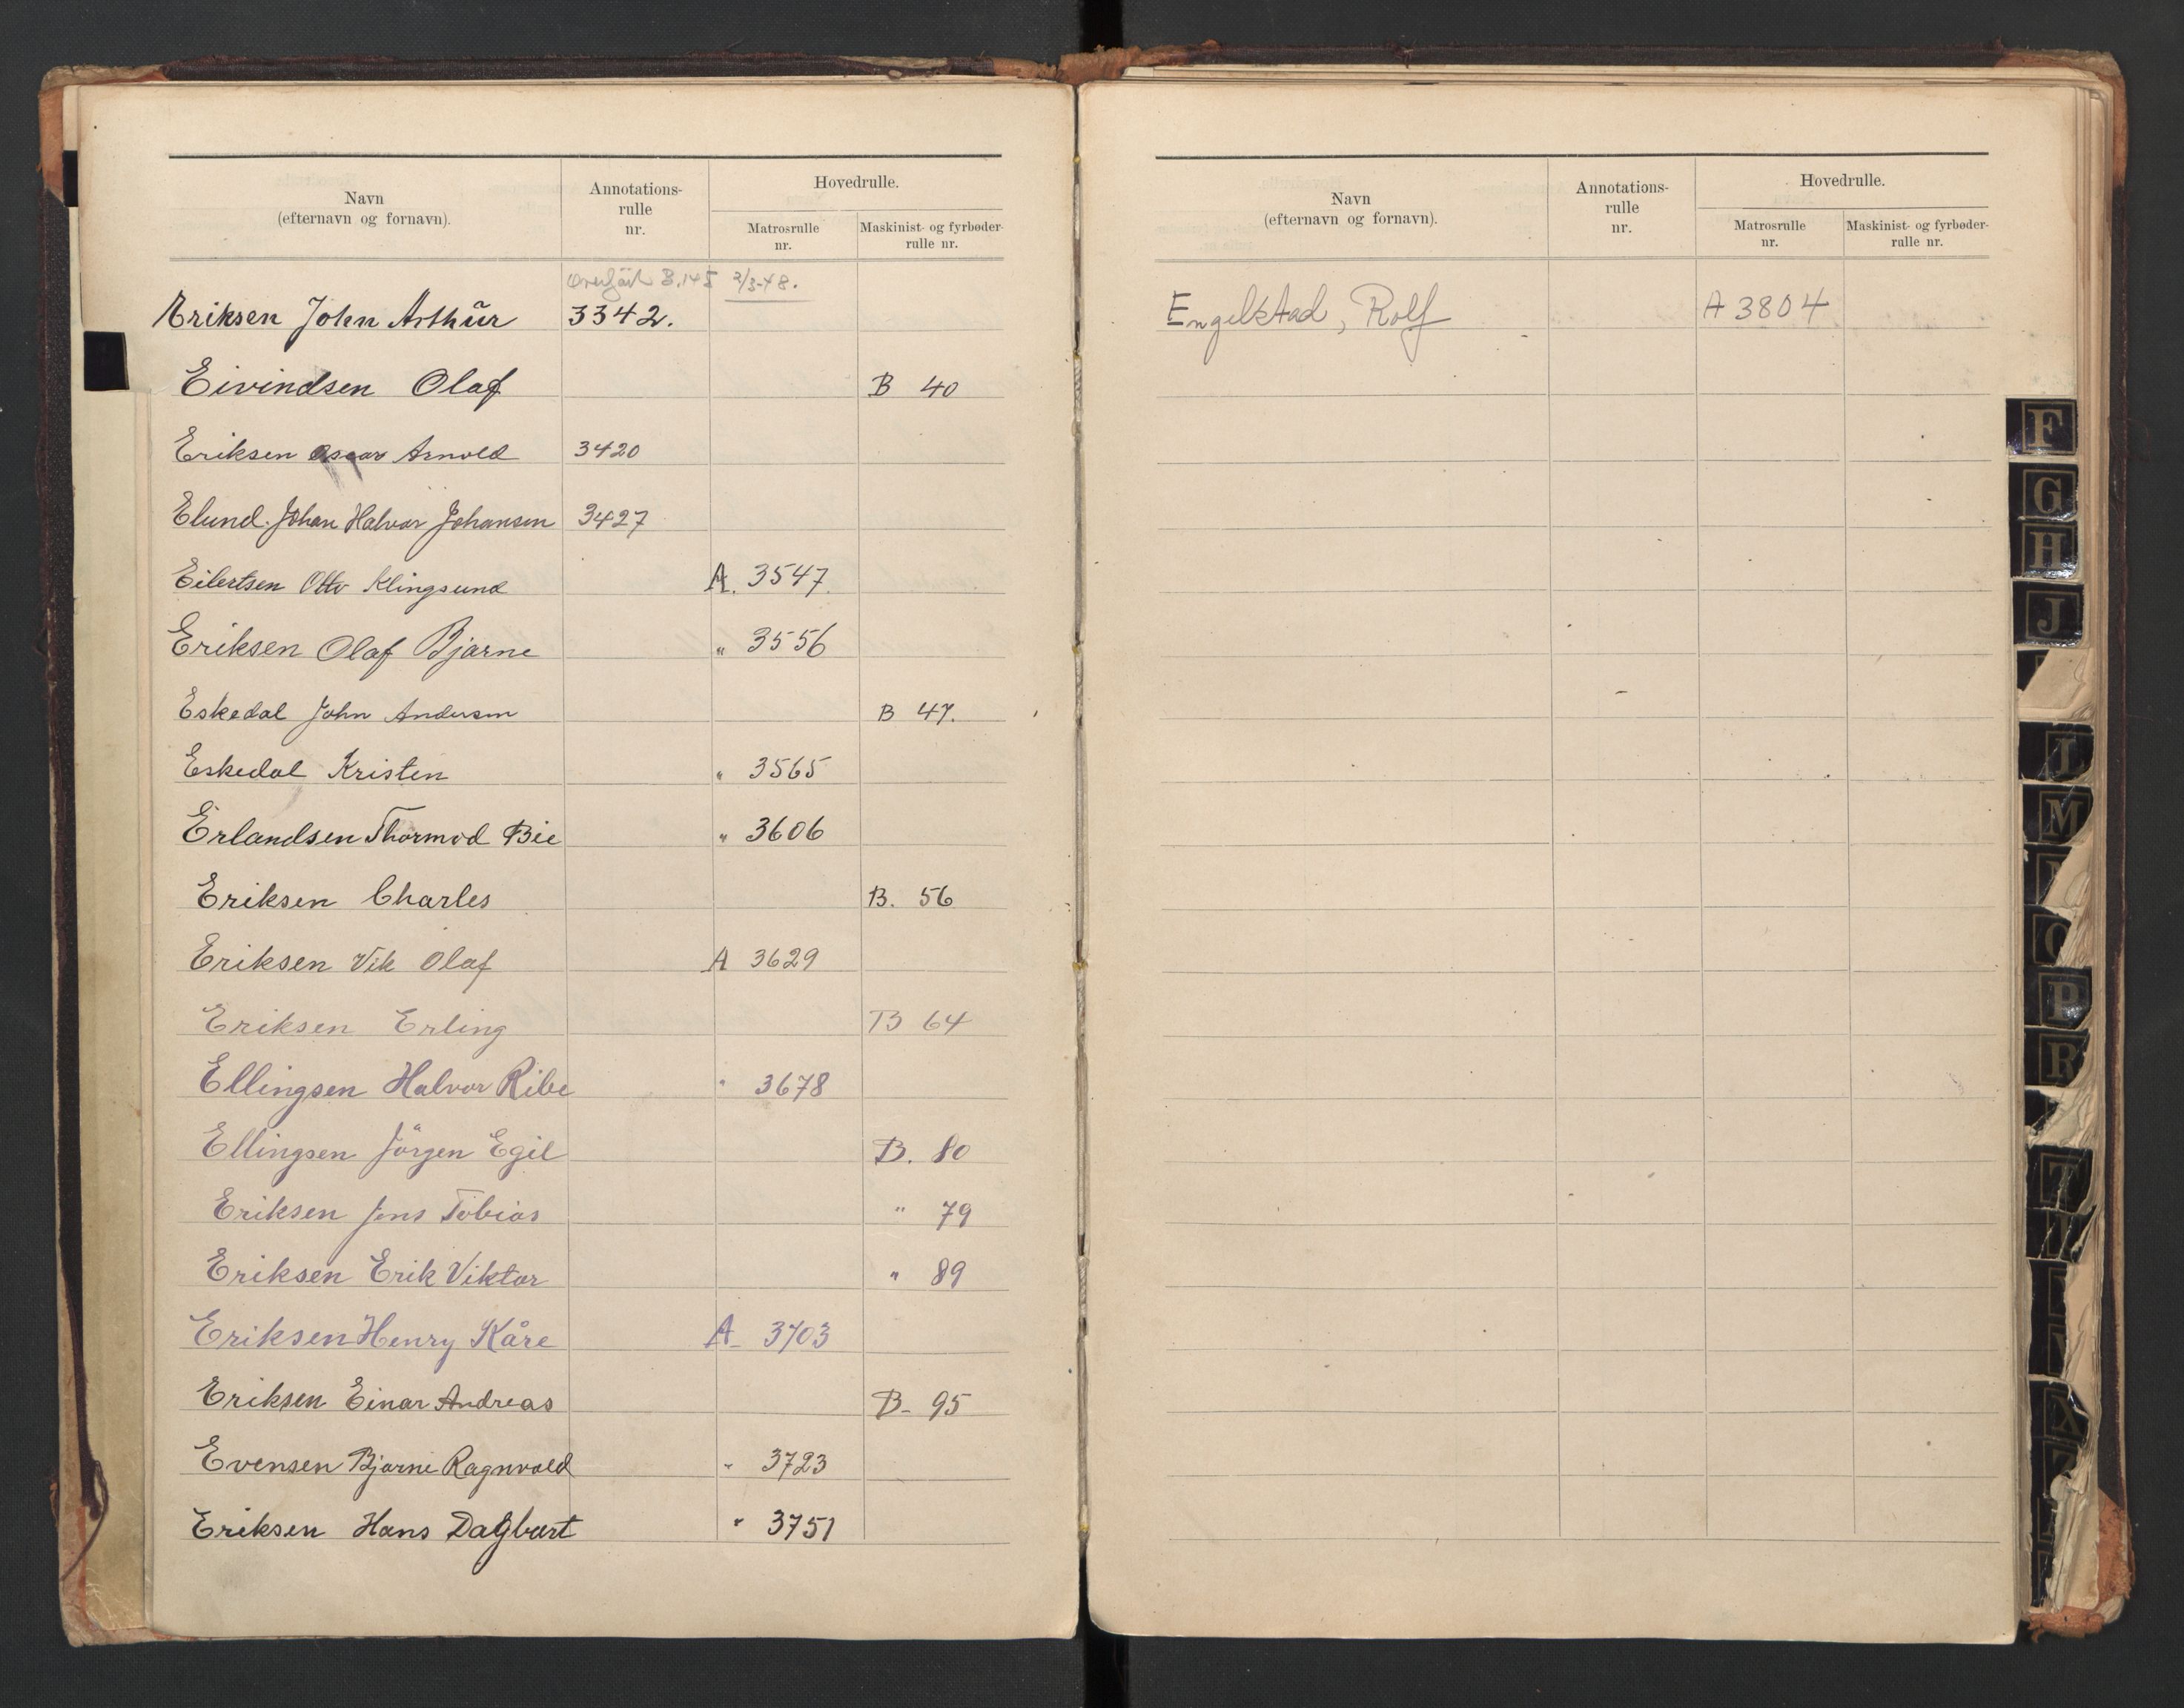 Navn
(efternavn og fornavn).
Annotations-
rulle
nr.
Hovedrulle.
Matrosrulle
nr.
Maskinist- og fyrbøder-
rulle nr.
B.145 2/3-48.
Eriksen John Arthŭr 3342.
Eivindsen Olaf B 40
Eriksen Oscar Arnold 3420
Elund. Johan Halvor Johansen 3427
Eilertsen Otto Klingsund A. 3547.
Eriksen Olaf Bjarne " 3556
Eskedal John Andersen B 47.
Eskedal Kristen " 3565
Erlandsen Thormod Bie " 3606
Eriksen Charles B. 56
Eriksen Vik Olaf A 3629
Eriksen Erling B 64
Ellingsen Halvor Ribe " 3678
Ellingsen Jörgen Egil B. 80
Eriksen Jens Tobias " 79
Eriksen Erik Viktor " 89
Eriksen Henry Kåre A- 3703
Eriksen Einar Andreas B- 95
Evensen Bjarne Ragnvald " 3723
Eriksen Hans Dagbart " 3751
Navn
(efternavn og fornavn).
Annotations-
rulle
nr.
Hovedrulle.
Matrosrulle
nr.
Maskinist- og fyrbøder-
rulle nr.
Engelstad, Rolf A 3804
F
G
H
J
L
M
O
P
R
T
X